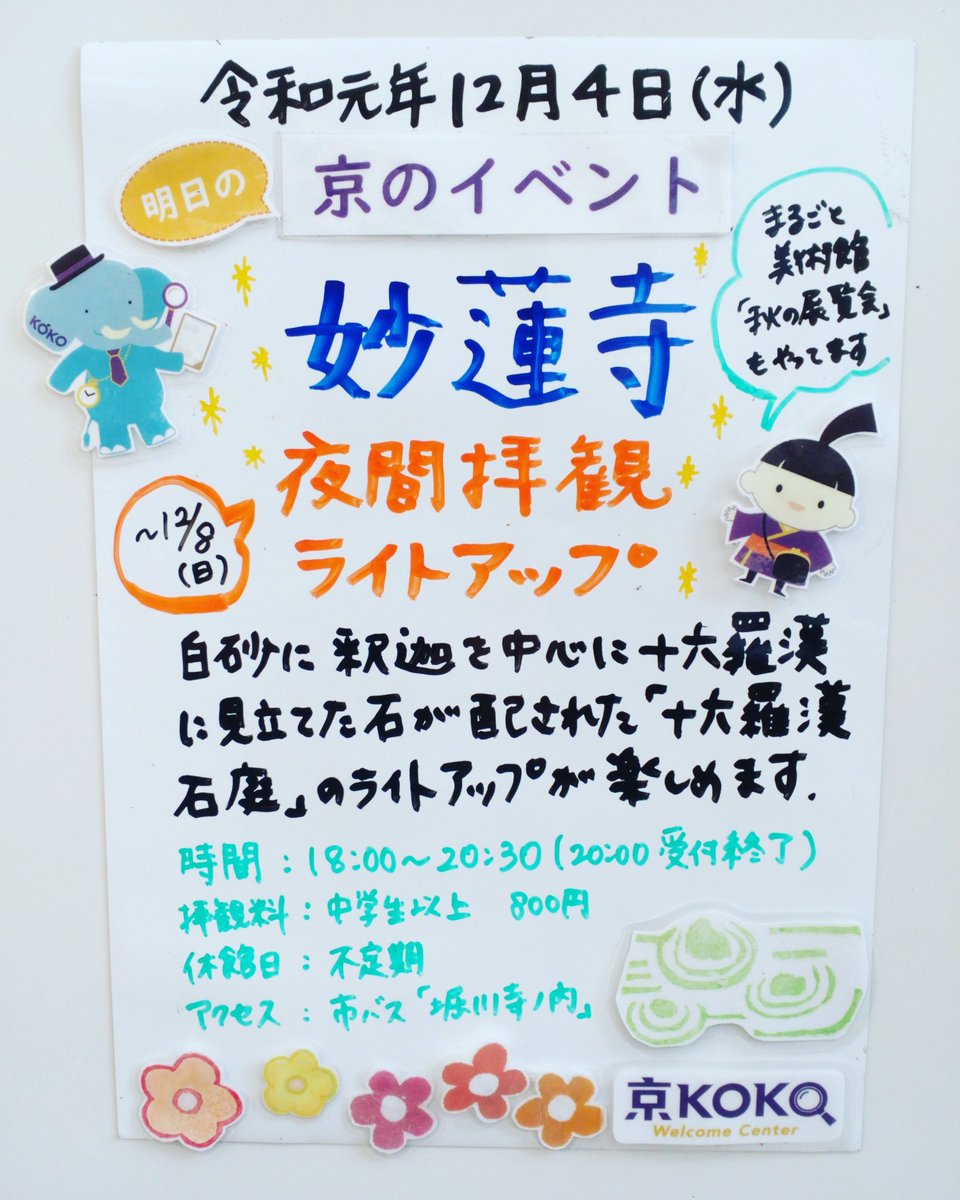 令和元年12月4日(水)
明日の
京のイベント
まるごと
美術館
「秋の展覧会」
もやってます
KOKO
妙蓮寺
夜間拝観
ライトアップ
~12/8
(日)
白砂に釈迦を中心に十六羅漢
に見立てた石が配された「十六羅漢
石庭」のライトアップが楽しめます.
時間:18:00~20:30(20:00受付終了)
拝観料:中学生以上 800円
休館日:不定期
アクセス:市バス「堀川寺ノ内」
京KOKO
Welcome Center